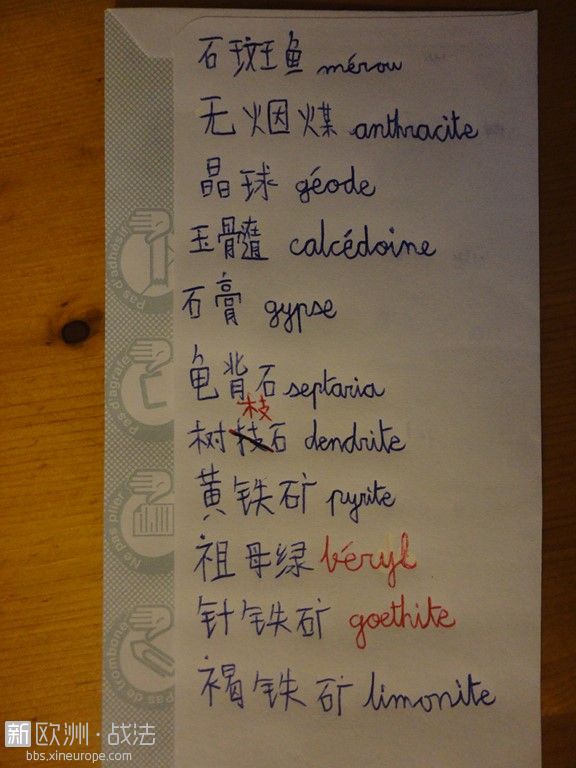 石斑鱼 mérou
无烟煤 anthracite
晶球 géode
玉骨髓 calcédoine
石膏 gypse
龟背石 septaria
枝
树技石 dendrite
黄铁矿 pyrite
祖母绿 béryl
针铁矿 goethite
褐铁矿 limonite
Pas d'adhésif
Pas d'agrafe
Ne pas plier
Pas de trombone
新欧洲·战法
bbs.xineurope.com